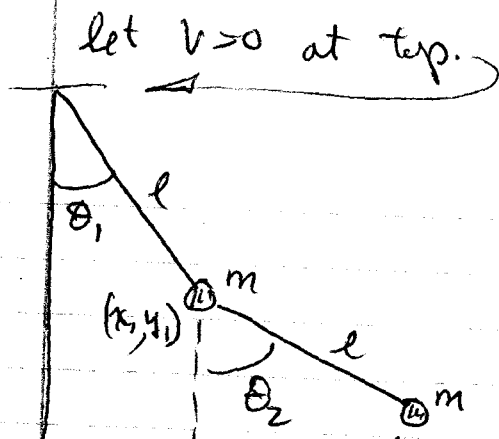 let V>0 at top.
l
θ₁
m
(x₁,y₁)
l
θ₂
m